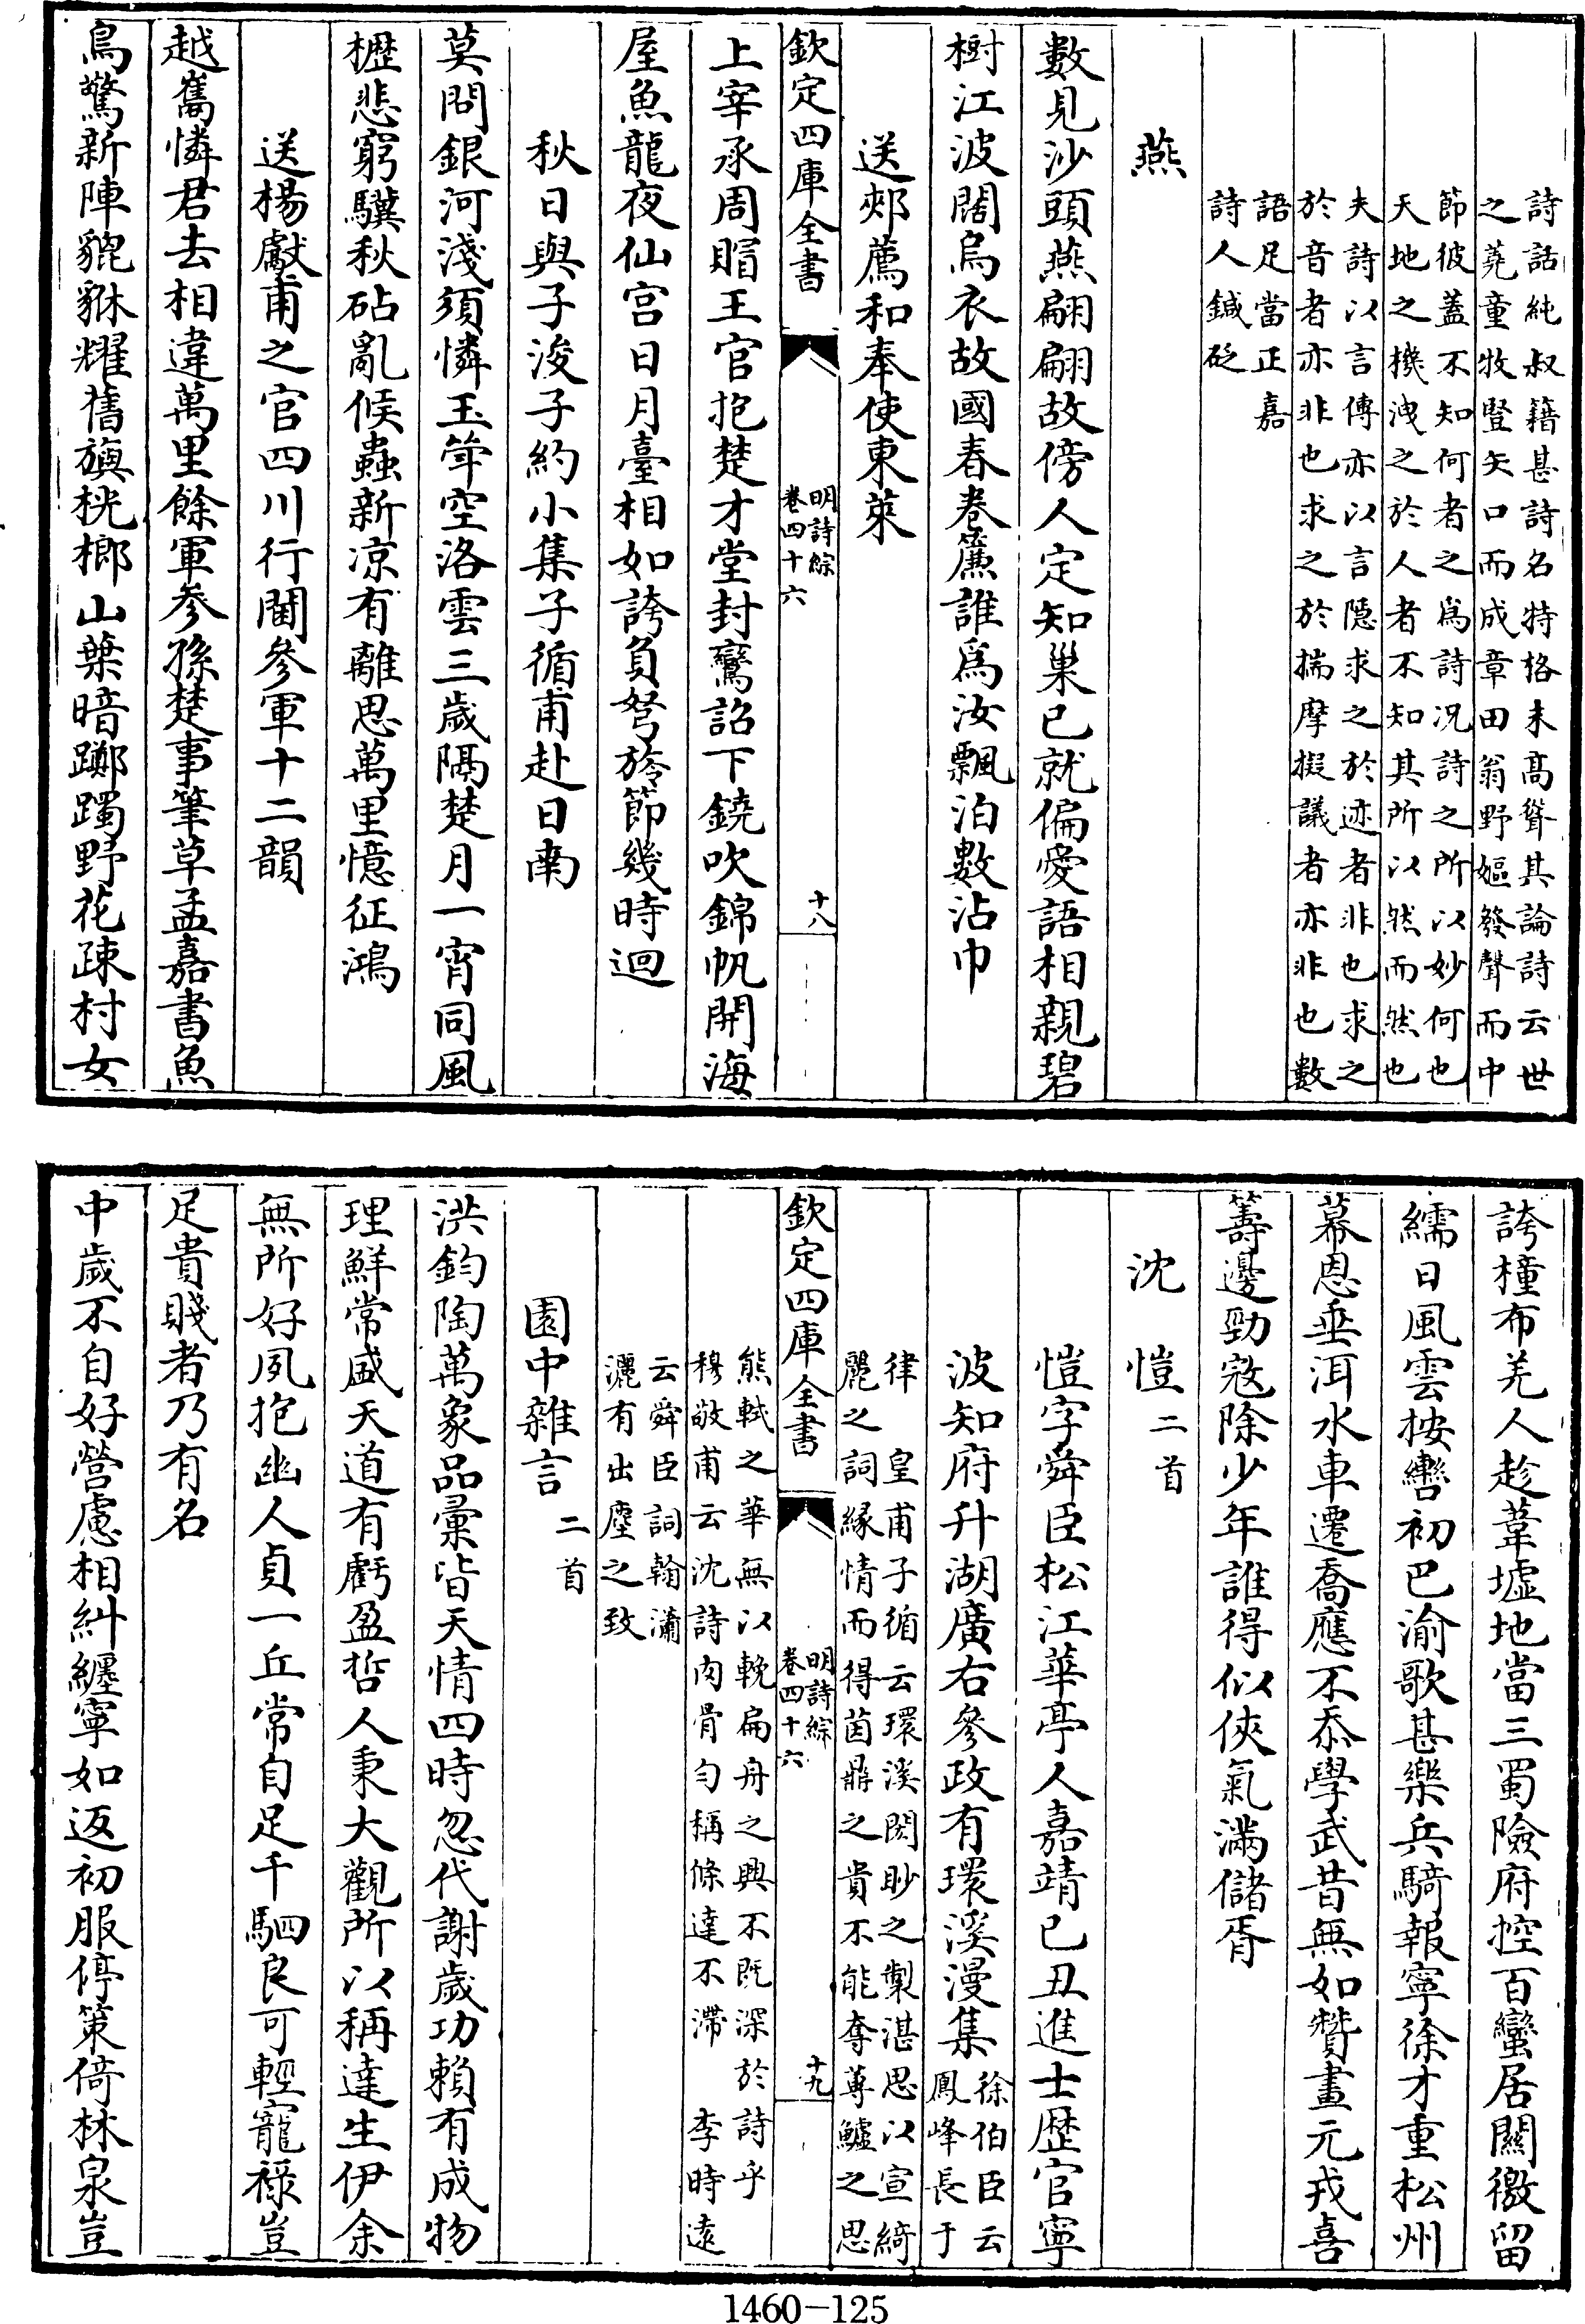 詩話純叔籍甚詩名特格未髙聳其論詩云世
之蕘童牧豎矢口而成章田翁野嫗發聲而中
節彼蓋不知何者之爲詩况詩之所以妙何也
天地之機洩之於人者不知其所以然而然也
夫詩以言傳亦以言隠求之於迹者非也求之
於音者亦非也求之於揣摩擬議者亦非也數
語足當正嘉
詩人鍼砭
燕
數見沙頭燕翩翩故傍人定知巢已就偏愛語相親碧
樹江波闊烏衣故國春巻簾誰爲汝飄泊數沾巾
送郟薦和奉使東萊
欽定四庫全書
明詩綜
巻四十六
十八
上宰承周瑁王官抱楚才堂封鸞詔下鐃吹錦帆開海
屋魚龍夜仙宫日月臺相如誇負弩旍節幾時迴
秋日與子浚子約小集子循甫赴日南
莫問銀河淺須憐玉筓空洛雲三歲隔楚月一宵同風
櫪悲窮驥秋砧亂候蟲新凉有離思萬里憶征鴻
送楊獻甫之官四川行閫參軍十二韻
越嶲憐君去相違萬里餘軍參孫楚事筆草孟嘉書魚
鳥驚新陣貔貅耀舊旟桄榔山葉暗躑躅野花疎村女
誇橦布羌人趁葦墟地當三蜀險府控百蠻居關徼留
繻日風雲按轡初巴渝歌甚樂兵騎報寧徐才重松州
幕恩垂洱水車遷喬應不忝學武昔無如贊畫元戎喜
籌邊勁寇除少年誰得似俠氣滿儲胥
沈愷二首
愷字舜臣松江華亭人嘉靖已丑進士歴官寧
波知府升湖廣右參政有環溪漫集徐伯臣云
鳳峰長于
律 皇甫子循云環溪閎眇之製湛思以宣綺
麗之詞縁情而得茵鼎之貴不能奪蓴鱸之思
欽定四庫全書
明詩綜
巻四十六
十九
熊軾之華無以輓扁舟之興不既深於詩乎
穆敬甫云沈詩肉骨勻稱條達不滯 李時遠
云舜臣詞翰瀟
灑有出塵之致
園中雜言二首
洪鈞陶萬象品彚皆天情四時忽代謝歲功賴有成物
理鮮常盛天道有虧盈哲人秉大觀所以稱達生伊余
無所好夙抱幽人貞一丘常自足千駟良可輕寵祿豈
足貴賤者乃有名
中歲不自好營慮相糾纒寧如返初服停策倚林泉豈
1460-125